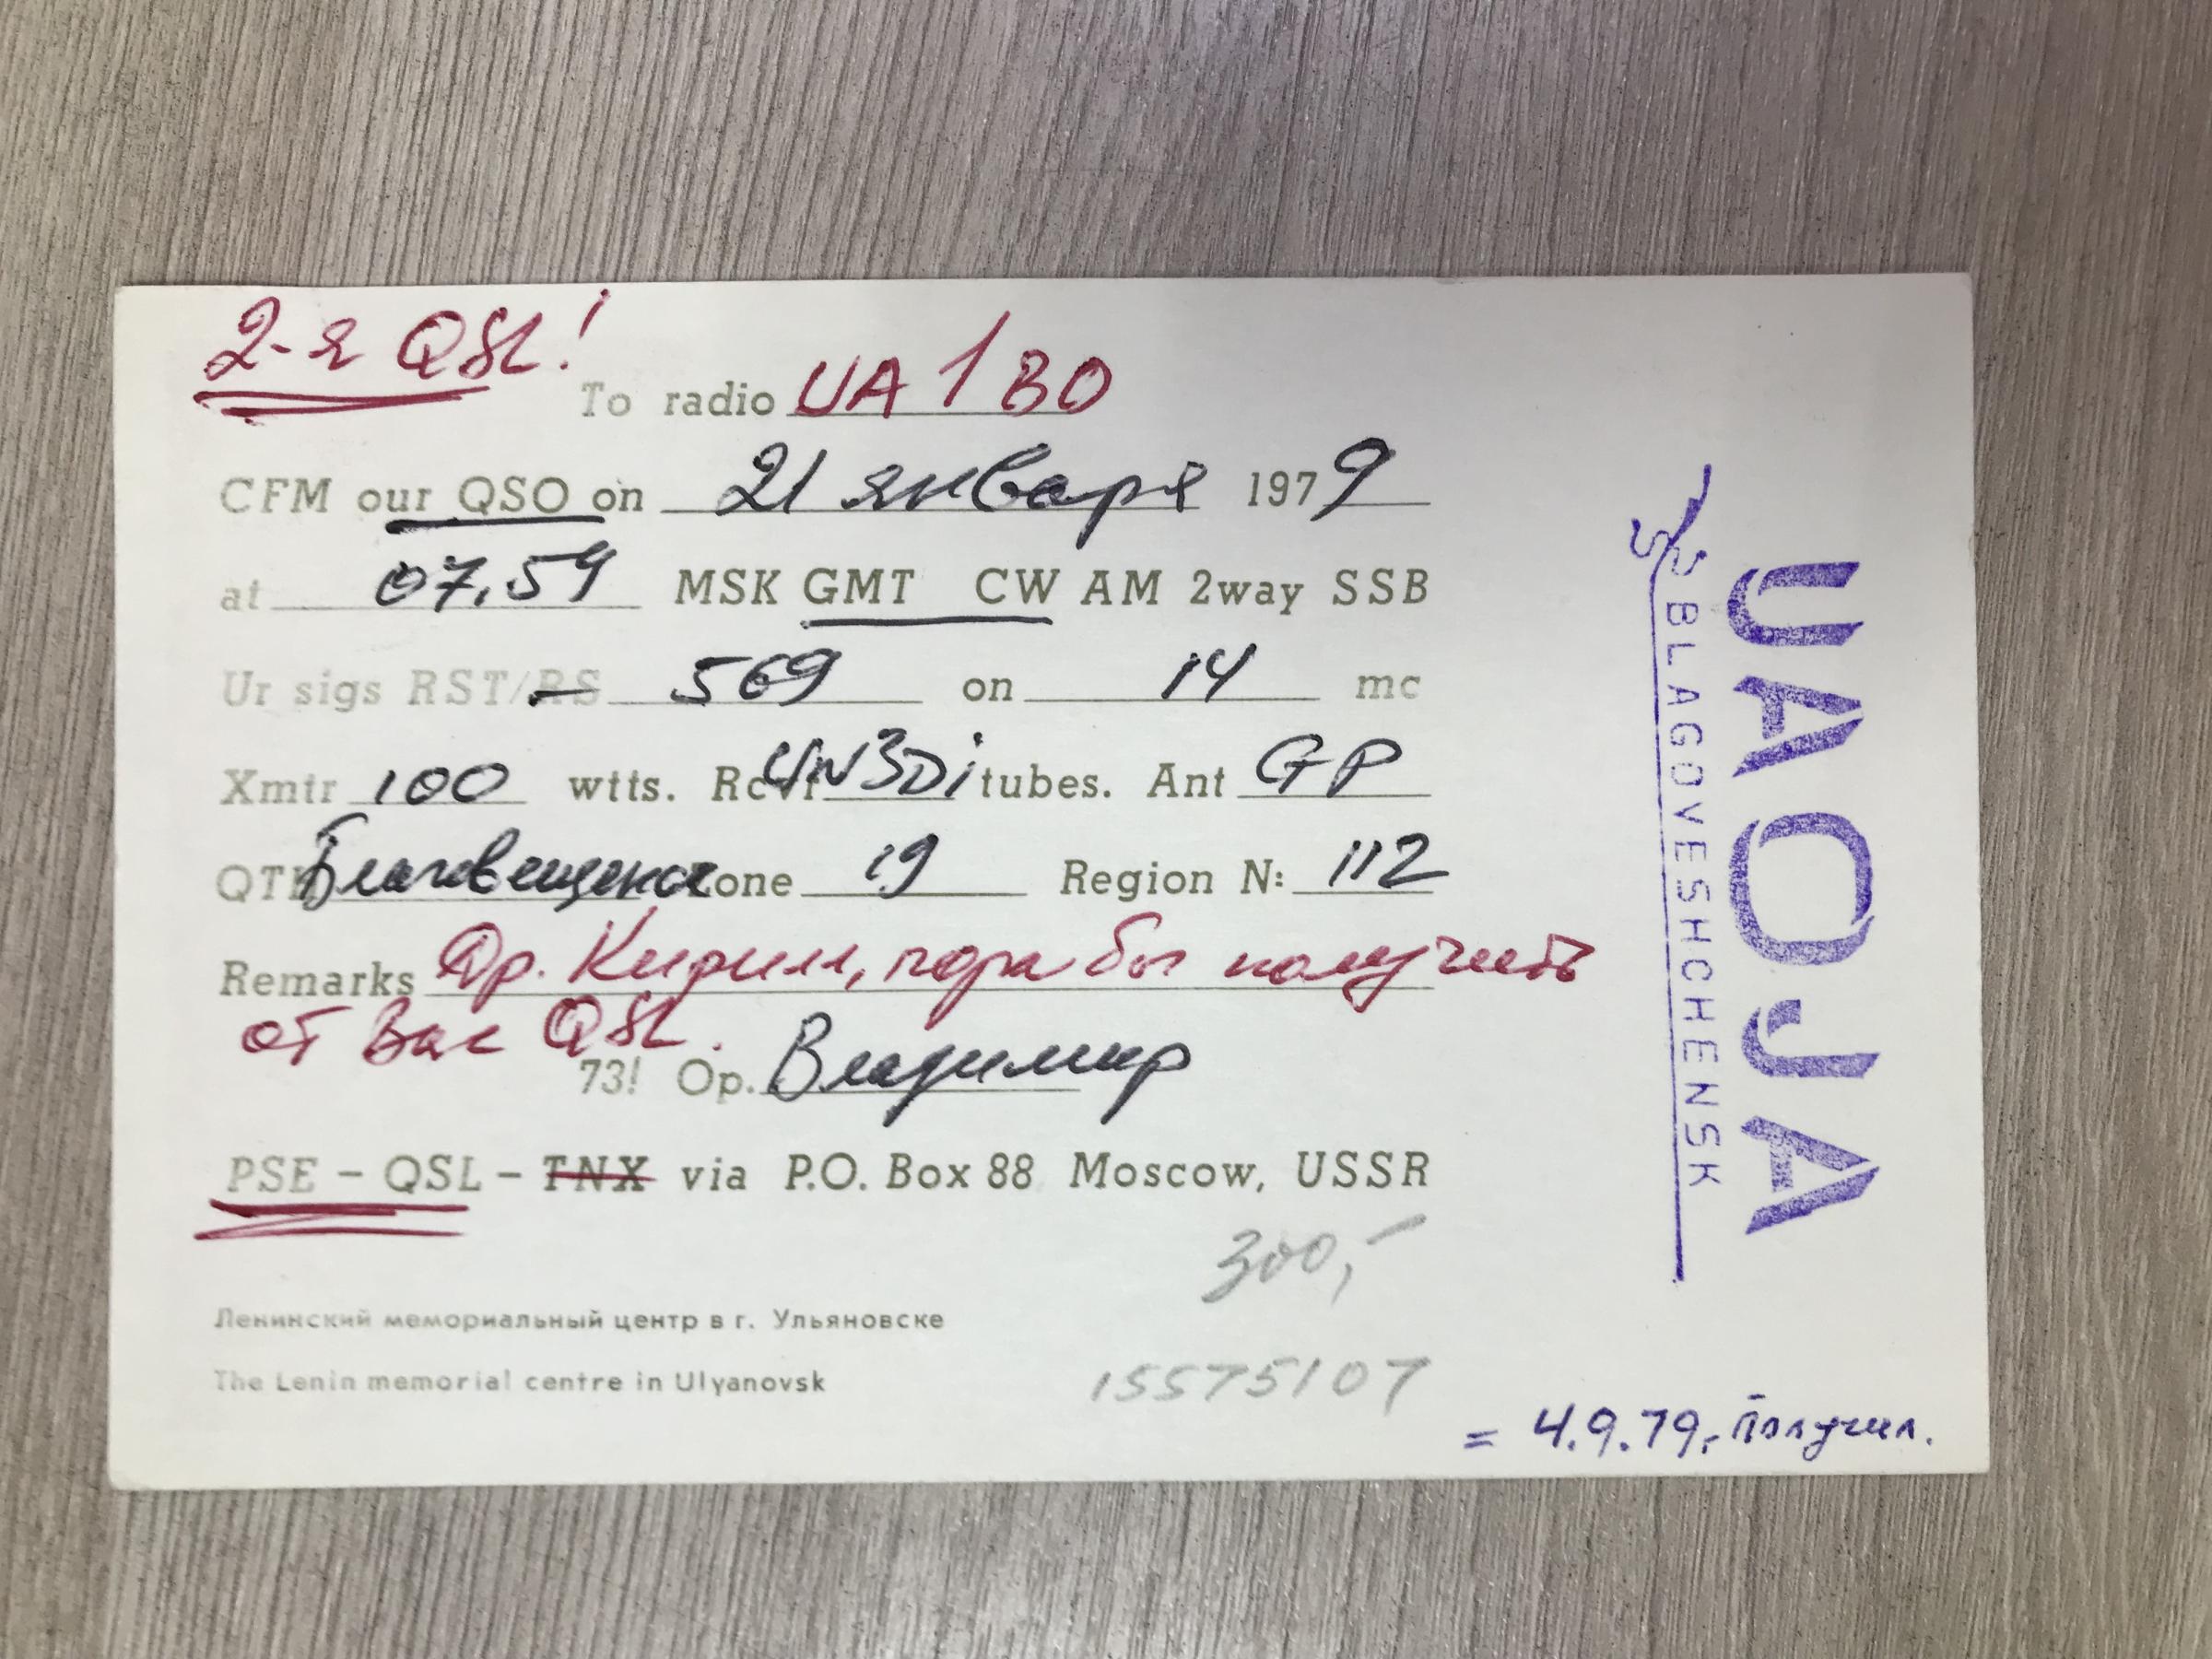 2-я QSL!
To radio UA1BO
CFM our QSO on 21 января 1979
at 07.59 MSK GMT CW AM 2way SSB
Ur sigs RST/RS 569 on 14 mc
Xmtr 100 wtts. Rcvr UW3Di tubes. Ant GP
QTH Благовещенск Zone 19 Region N: 112
Remarks Др. Кирилл, пора бы получить
от Вас QSL.
73! Op. Владимир
PSE - QSL - TNX via P.O. Box 88 Moscow, USSR
300,-
Ленинский мемориальный центр в г. Ульяновске
The Lenin memorial centre in Ulyanovsk
15575107
= 4.9.79,- получил.
UA0JA
BLAGOVESHCHENSK